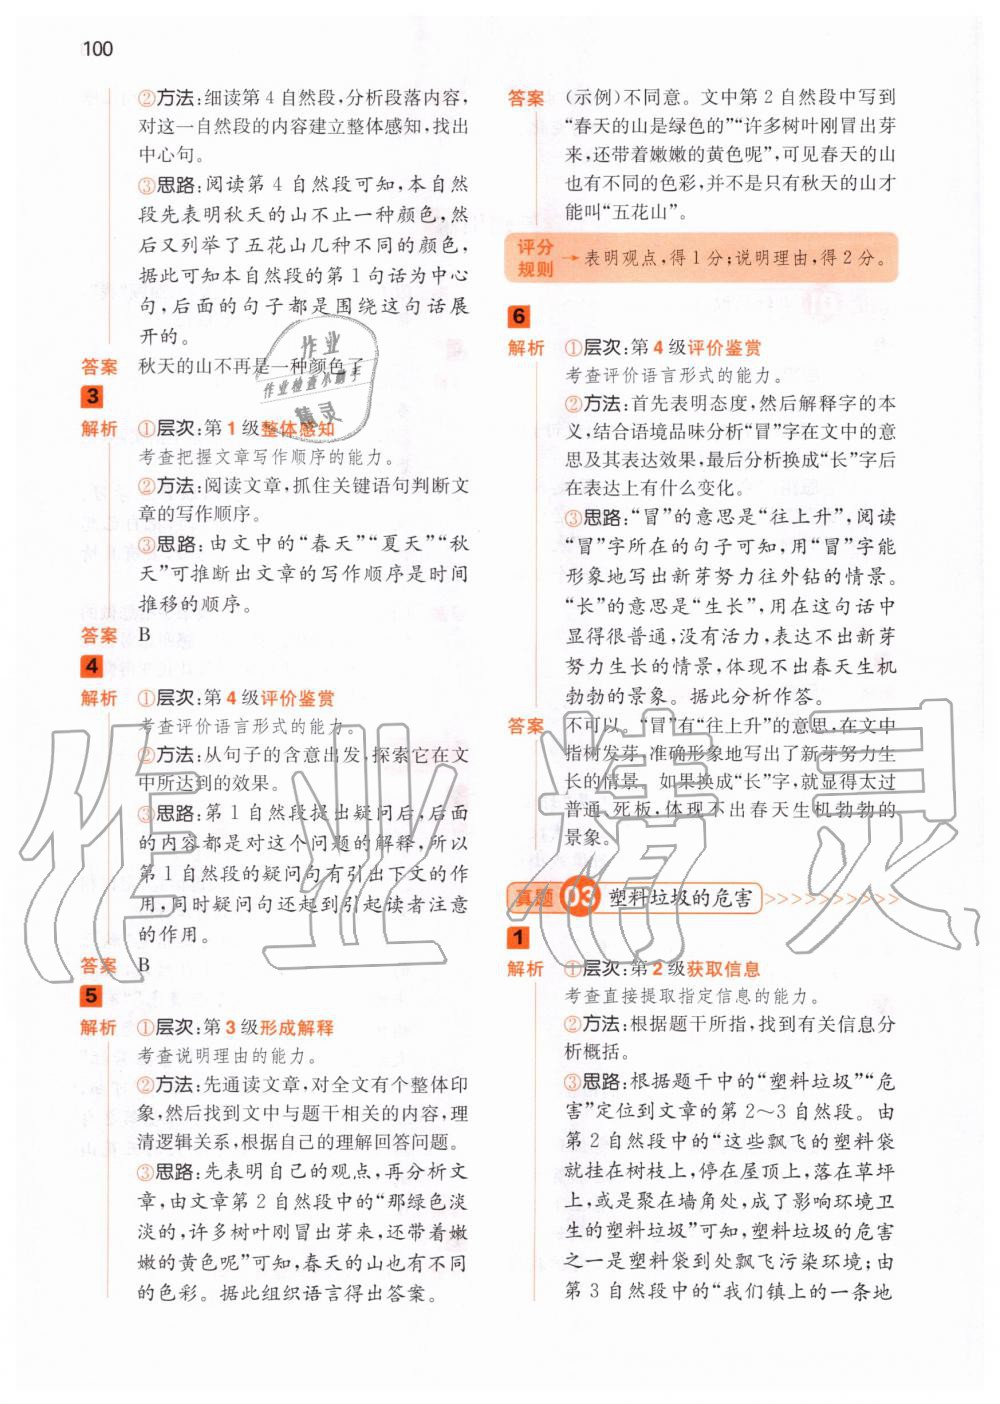 100
②方法:细读第4自然段,分析段落内容,
对这一自然段的内容建立整体感知,找出
中心句。
③思路:阅读第4自然段可知,本自然
段先表明秋天的山不止一种颜色,然
后又列举了五花山几种不同的颜色,
据此可知本自然段的第1句话为中心
句,后面的句子都是围绕这句话展
开的。
答案 秋天的山不再是一种颜色了
3
解析 ①层次:第1级整体感知
考查把握文章写作顺序的能力。
②方法:阅读文章,抓住关键语句判断文
章的写作顺序。
③思路:由文中的“春天”“夏天”“秋
天”可推断出文章的写作顺序是时间
推移的顺序。
答案 B
4
解析 ①层次:第4级评价鉴赏
考查评价语言形式的能力。
②方法:从句子的含意出发,探索它在文
中所达到的效果。
③思路:第1自然段提出疑问后,后面
的内容都是对这个问题的解释,所以
第1自然段的疑问句有引出下文的作
用,同时疑问句还起到引起读者注意
的作用。
答案 B
5
解析 ①层次:第3级形成解释
考查说明理由的能力。
②方法:先通读文章,对全文有个整体印
象,然后找到文中与题干相关的内容,理
清逻辑关系,根据自己的理解回答问题。
③思路:先表明自己的观点,再分析文
章,由文章第2自然段中的“那绿色淡
淡的,许多树叶刚冒出芽来,还带着嫩
嫩的黄色呢”可知,春天的山也有不同
的色彩。据此组织语言得出答案。
答案 (示例)不同意。文中第2自然段中写到
“春天的山是绿色的”“许多树叶刚冒出芽
来,还带着嫩嫩的黄色呢”,可见春天的山
也有不同的色彩,并不是只有秋天的山才
能叫“五花山”。
评分规则 → 表明观点,得1分;说明理由,得2分。
6
解析 ①层次:第4级评价鉴赏
考查评价语言形式的能力。
②方法:首先表明态度,然后解释字的本
义,结合语境品味分析“冒”字在文中的意
思及其表达效果,最后分析换成“长”字后
在表达上有什么变化。
③思路:“冒”的意思是“往上升”,阅读
“冒”字所在的句子可知,用“冒”字能
形象地写出新芽努力往外钻的情景。
“长”的意思是“生长”,用在这句话中
显得很普通,没有活力,表达不出新芽
努力生长的情景,体现不出春天生机
勃勃的景象。据此分析作答。
答案 不可以。“冒”有“往上升”的意思,在文中
指树发芽,准确形象地写出了新芽努力生
长的情景。如果换成“长”字,就显得太过
普通、死板,体现不出春天生机勃勃的
景象。
真题 03 塑料垃圾的危害 >>>>>>>>>>
1
解析 ①层次:第2级获取信息
考查直接提取指定信息的能力。
②方法:根据题干所指,找到有关信息分
析概括。
③思路:根据题干中的“塑料垃圾”“危
害”定位到文章的第2~3自然段。由
第2自然段中的“这些飘飞的塑料袋
就挂在树枝上,停在屋顶上,落在草坪
上,或是聚在墙角处,成了影响环境卫
生的塑料垃圾”可知,塑料垃圾的危害
之一是塑料袋到处飘飞污染环境;由
第3自然段中的“我们镇上的一条地
作业
作业检查小助手
精灵
作业精灵